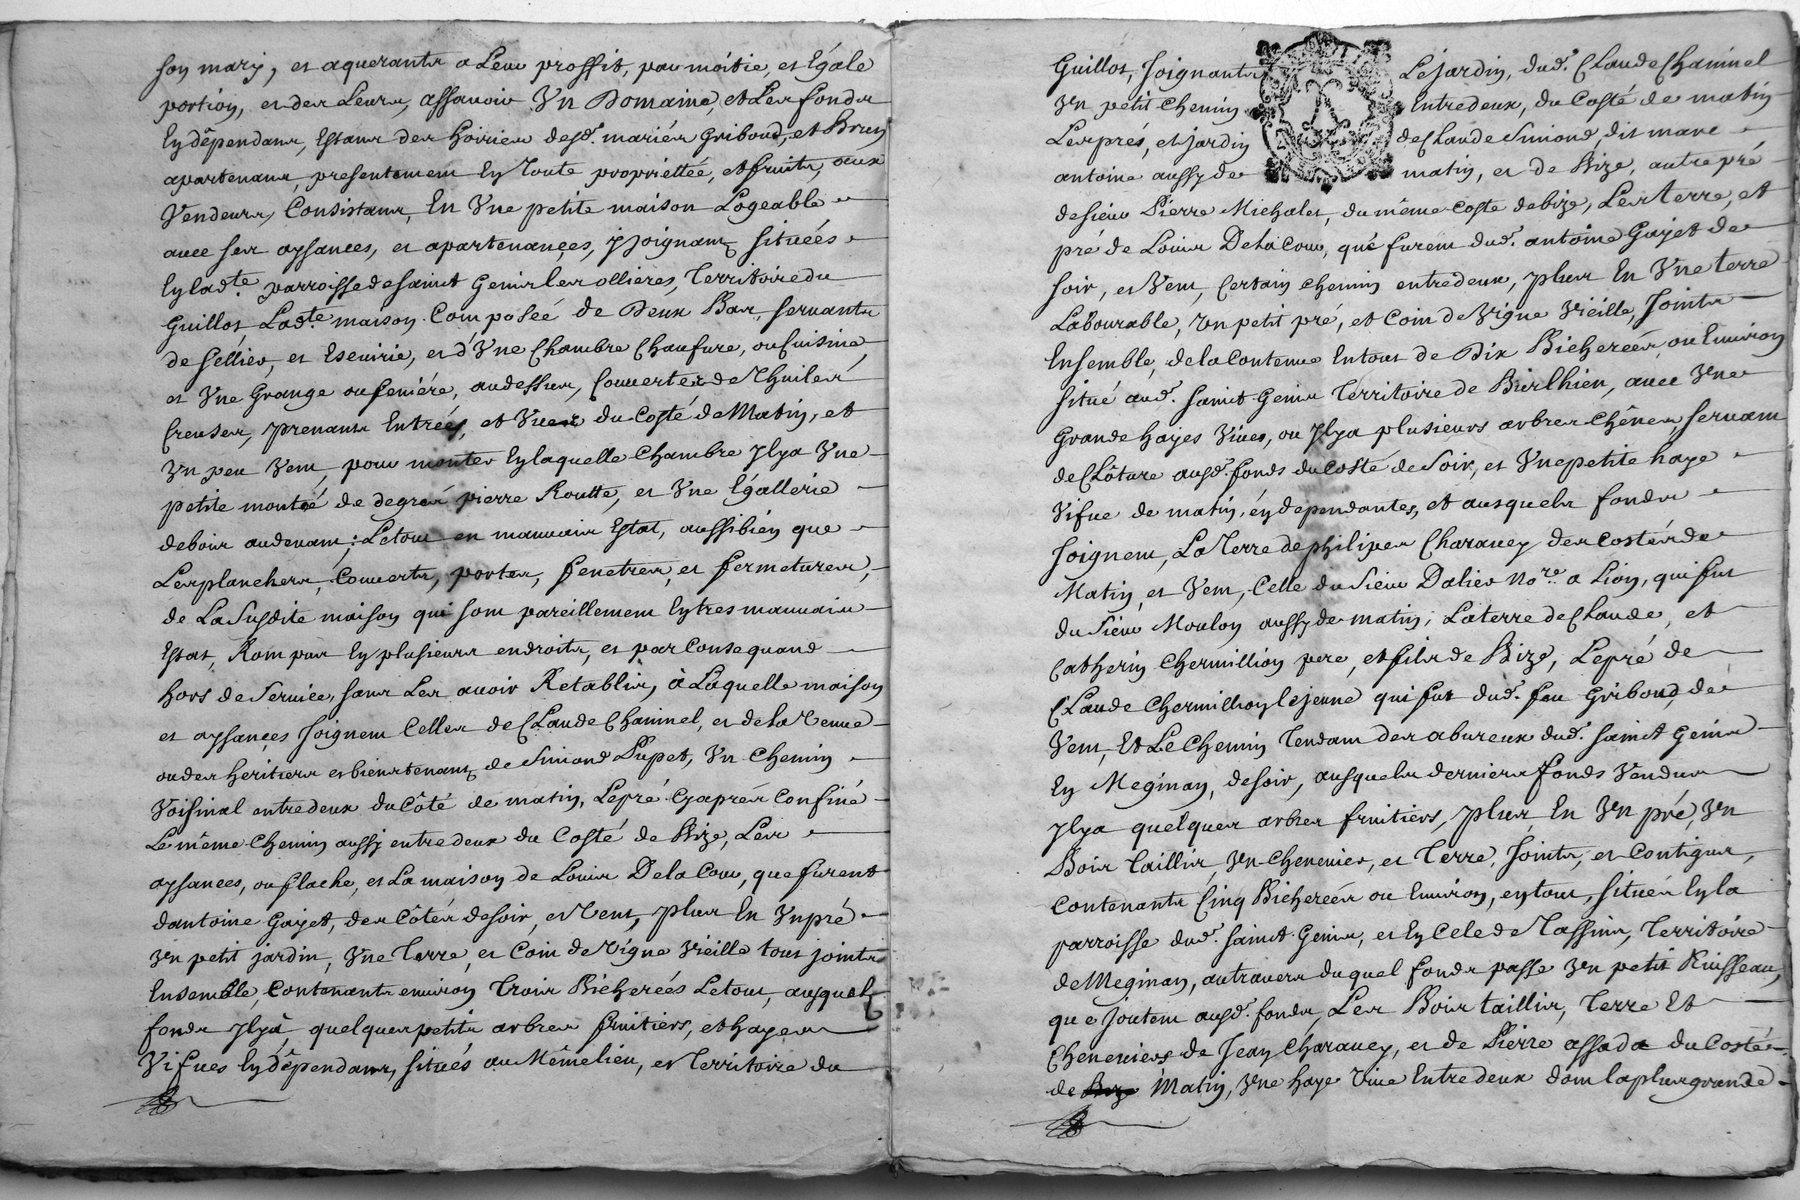 son mary, et aquerants a Leur proffit, par moitie, et Egále
portion, et des Leurs, assavoir Vn Domaine, et Les fonds
En dêpendans, Estans des hoiries desd. mariés Griboud, et Brun
apartenans, presentement En Toute propriettée, et fruits, aux
Vendeurs, Consistans, En Vne petite maison Logeable
avec ses aysances, et apartenançes, y joignant situéés
En lad.te parroisse de saint Genis les ollieres, Territoire du
Guillot Lad.te maison Composéé de Deux Bas, servants
de sellier, et Escuirie, et d'Vne Chambre Chaufure, ou Cuisine
et Vne Grange ou feniére, au dessus, Couvertes de Thuiles
Creuses, prenants Entréé, et Vues du Costé de Matin, et
Vn peu Vent, pour monter En laquelle Chambre Il y a Vne
petite montéé de degrés pierre Routte, et Vne Egallerie
de bois au devant; Le tout en mauvais Estat, aussi bién que
Les planchers, Couverts, portes, fenetres, et fermetures,
de La Susdite maison qui sont pareillement En tres mauvais
Estat, Rompus En plusieurs endroits, et par Consequand
hors de Service, sans Les avoir Retablir, à Laquelle maison
et aysances Joignent Celles de CLaude Chaninel, et de la Venue
ou des heritiers et bientenans de Simond Pupet, Vn Chemin
Voisinal entredeux du Côté de matin, Le pré Cy aprés Confiné
Le même Chemin aussy entredeux du Costé de Bize, Les
aysances, ou flache, et La maison de Louis Delacour, que furent
dantoine Gayet, des Côtés de soir, et Vent, plus En Vn pré
Vn petit jardin, Vne Terre, et Coin de Vigne Vieille tous joints
Ensemble, Contenants environ Trois Bicheréés Le tout, ausquels
fonds Il y à quelques petits arbres fruitiers, et hayes
Vifves En dêpendans, situés au Même lieu, et Territoire du
Guillot, Joignants Le Jardin, dud. CLaude Chaninel
Vn petit Chemin Entredeux, du Costé de matin
Les prés, et Jardin de Claude Simond, dit marc
antoine aussy de matin, et de Bize, autre pré
de sieur Pierre Michalet, du même Coste de bize, Les terre, et
pré de Louis Delacour, que furent dud. antoine Gayet de
soir, et Vent, Certain Chemin entredeux, plus En Vne terre
Labourable, Vn petit pré, et Coin de Vigne Vieille, Joints
Ensemble, de la Contenue En tout de Dix Bicheréés, ou Environ
situé aud. saint Genis Territoire de Bierlhien, avec Vne
Grande hayes Vives, ou Il y a plusieurs arbres Chênes, servant
de CLôture ausd. fonds du Costé de Soir, et Vne petite haye
Vifue de matin, en dépendantes, et ausquels fonds
Joignent, La Terre de philipes Charavey des Costés de
Matin, et Vent, Celle du Sieur Dalier No.re a Lion, qui fut
du Sieur Moulon aussy de matin, La terre de Claude, et
Catherin Chermillion pere, et fils de Bize, Le pré de
CLaude Chermillion le jeune qui fut dud. feu Griboud, de
Vent, Et Le Chemin Tendant des abureux dud. saint Genis
En Meginan, de soir, ausquels derniers fonds Vendus
Il y a quelques arbres fruitiers, plus, En Vn pré, Vn
Bois Taillis, Vn Chenevier, et Terre, Joints, et Contigus,
Contenants Cinq Bicheréés ou Environ, en tout, situés En la
parroisse dud. saint Genis, et En Cele de Tassins, Territoire
de Meginan, au travers duquel fonds passe Vn petit Ruisseau,
que Joutent ausd. fonds, Les Bois taillis, Terre Et
Cheneviers de Jean Charavey, et de Pierre assada du Costé
de Matin, Vne haye Vive Entredeux dont la plus grande